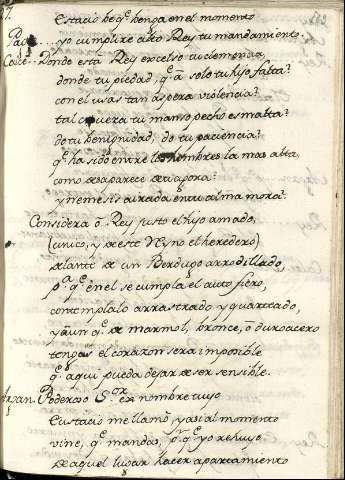 Estacio he q.e benga en el momento
Pag. .... yo cumplire alto Rey tu mandamiento.
Donde esta Rey excelso tu clemencia,
donde tu piedad, q.e a solo tu hijo falta?
con el usas tan aspera violencia?
tal era tu manso pecho esmalta?
do tu benignidad, do tu paciencia?
q.e ha sido entre los hombres la mas alta,
como desaparece de ti agora?
y nemesis airada en tu alma mora?
Considera ô Rey justo el hijo amado,
(unico, y de este Reyno el heredero)
delante de un Berdugo arrodillado,
p.a q.e en el se cumpla el auto fiero,
contemplalo arrastrado y quarteado,
y aun q.e de marmol, bronce, o duro acero
tengas el corazon sera imposible
q.e aqui pueda dejar de ser sensible.
Poderoso S.or en nombre tuyo
Eustacio me llamò, y asi al momento
vine, q.e mandas, q.e yo rehuyo
de aquel lugar hacer apartamiento